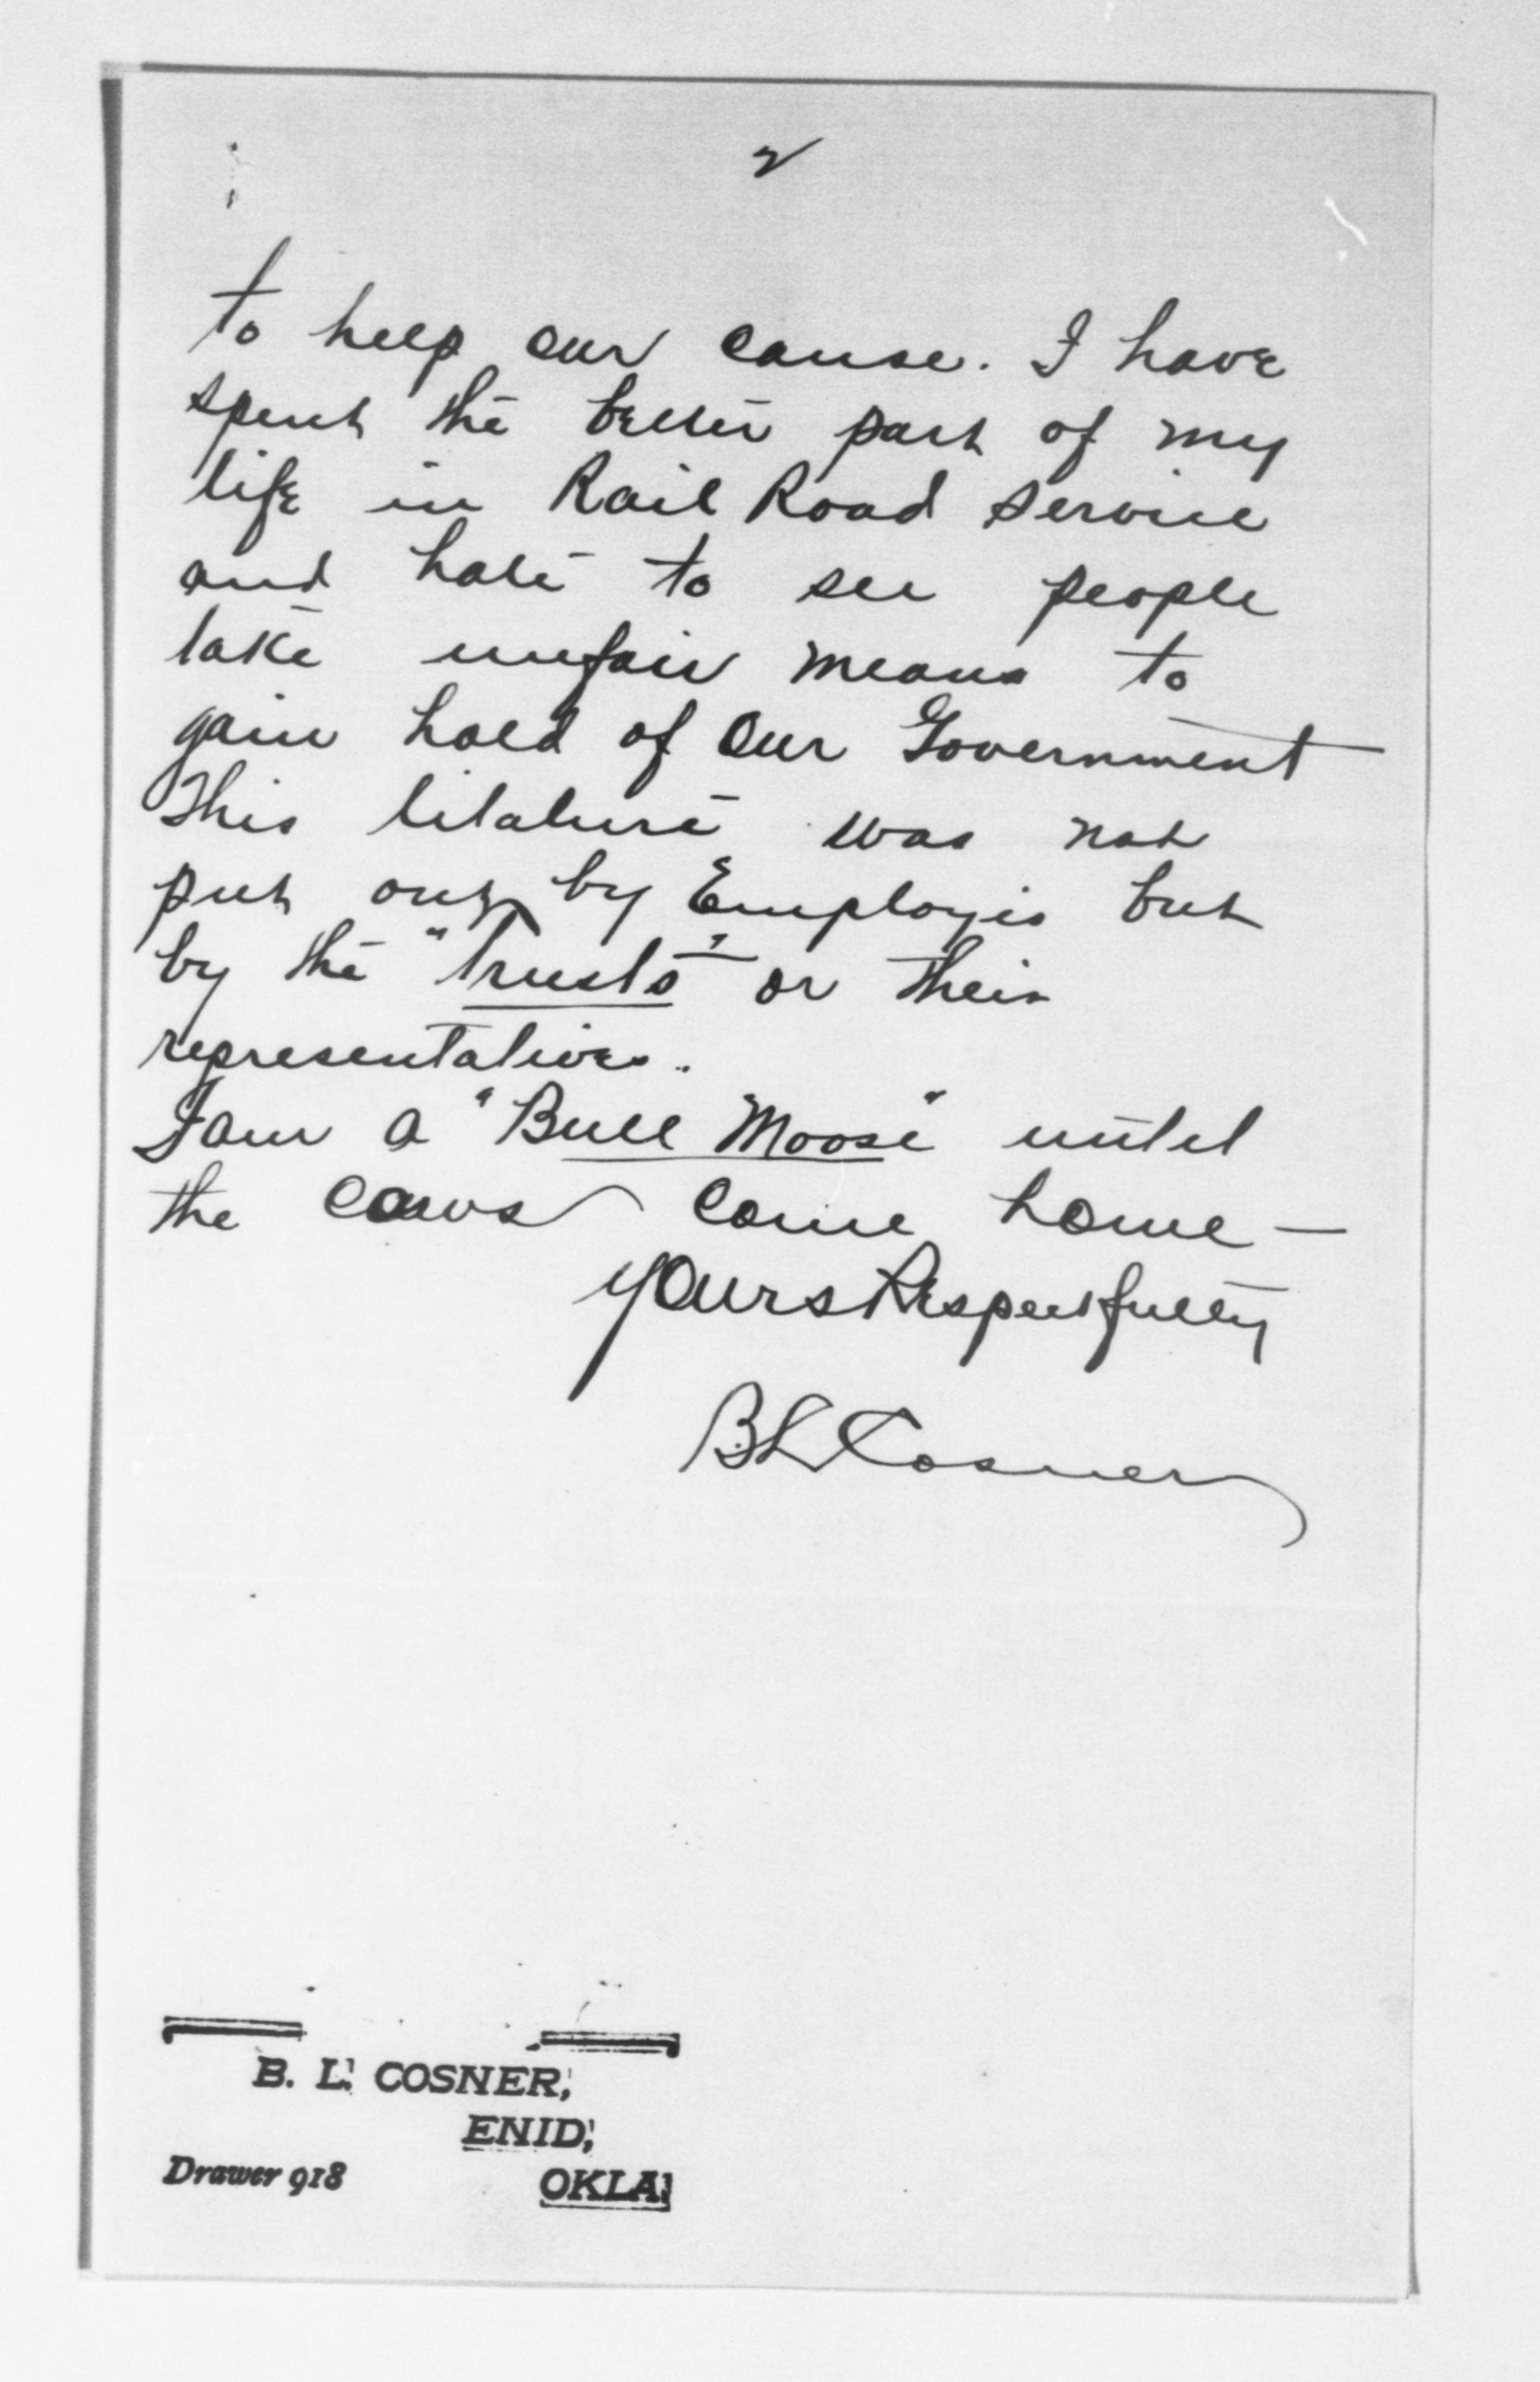 2
to help our cause. I have
spent the better part of my
life in Rail Road service
and hate to see people
take unfair means to
gain hold of our Government
This litature was not
put out by Employes but
by the "Trusts" or their
representatives.
I am a "Bull Moose" until
the cows come home —
Yours Respectfully
B L Cosner
B. L. COSNER,
ENID,
Drawer 918 OKLA.